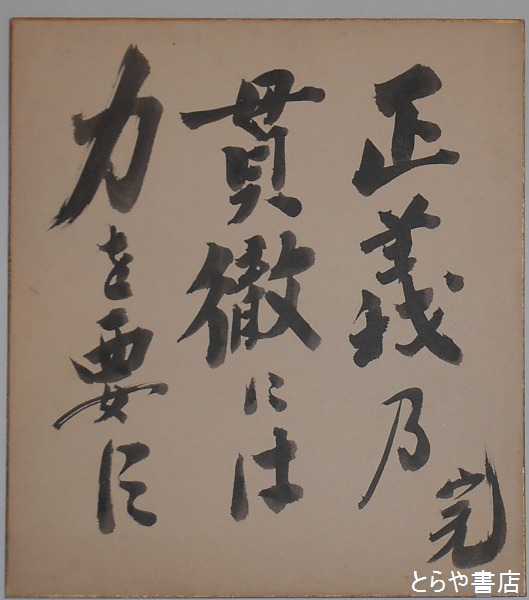 正義乃
貫徹には
力を要に
完
とらや書店